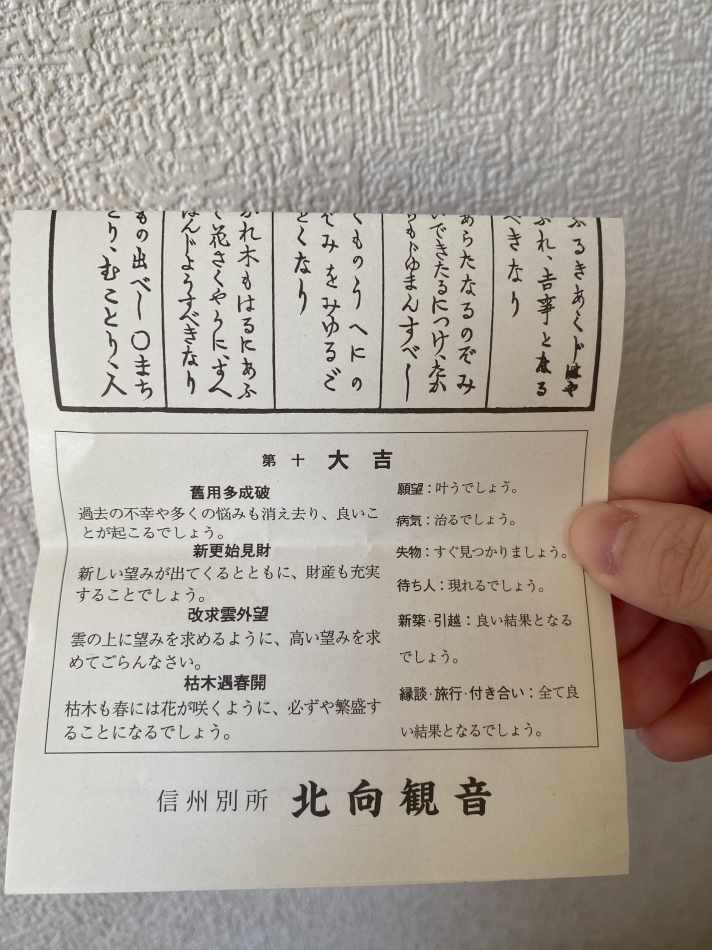 ふるきあくじはや
ぶれ、吉事と成る
べきなり
あらたなるのぞみ
いできたるにつけ、たか
らもじゆまんすべし
くものうへにの
ぞみをみゆるご
とくなり
かれ木もはるにあふ
て花さくやうにすへ
はんじようすべきなり
もの出べし〇まち
とり、むことり、人
第十 大吉
舊用多成破
過去の不幸や多くの悩みも消え去り、良いこ
とが起こるでしょう。
新更始見財
新しい望みが出てくるとともに、財産も充実
することでしょう。
改求雲外望
雲の上に望みを求めるように、高い望みを求
めてごらんなさい。
枯木遇春開
枯木も春には花が咲くように、必ずや繁盛す
ることになるでしょう。
願望：叶うでしょう。
病気：治るでしょう。
失物：すぐ見つかりましょう。
待ち人：現れるでしょう。
新築·引越：良い結果となる
でしょう。
縁談·旅行·付き合い：全て良
い結果となるでしょう。
信州別所 北向観音